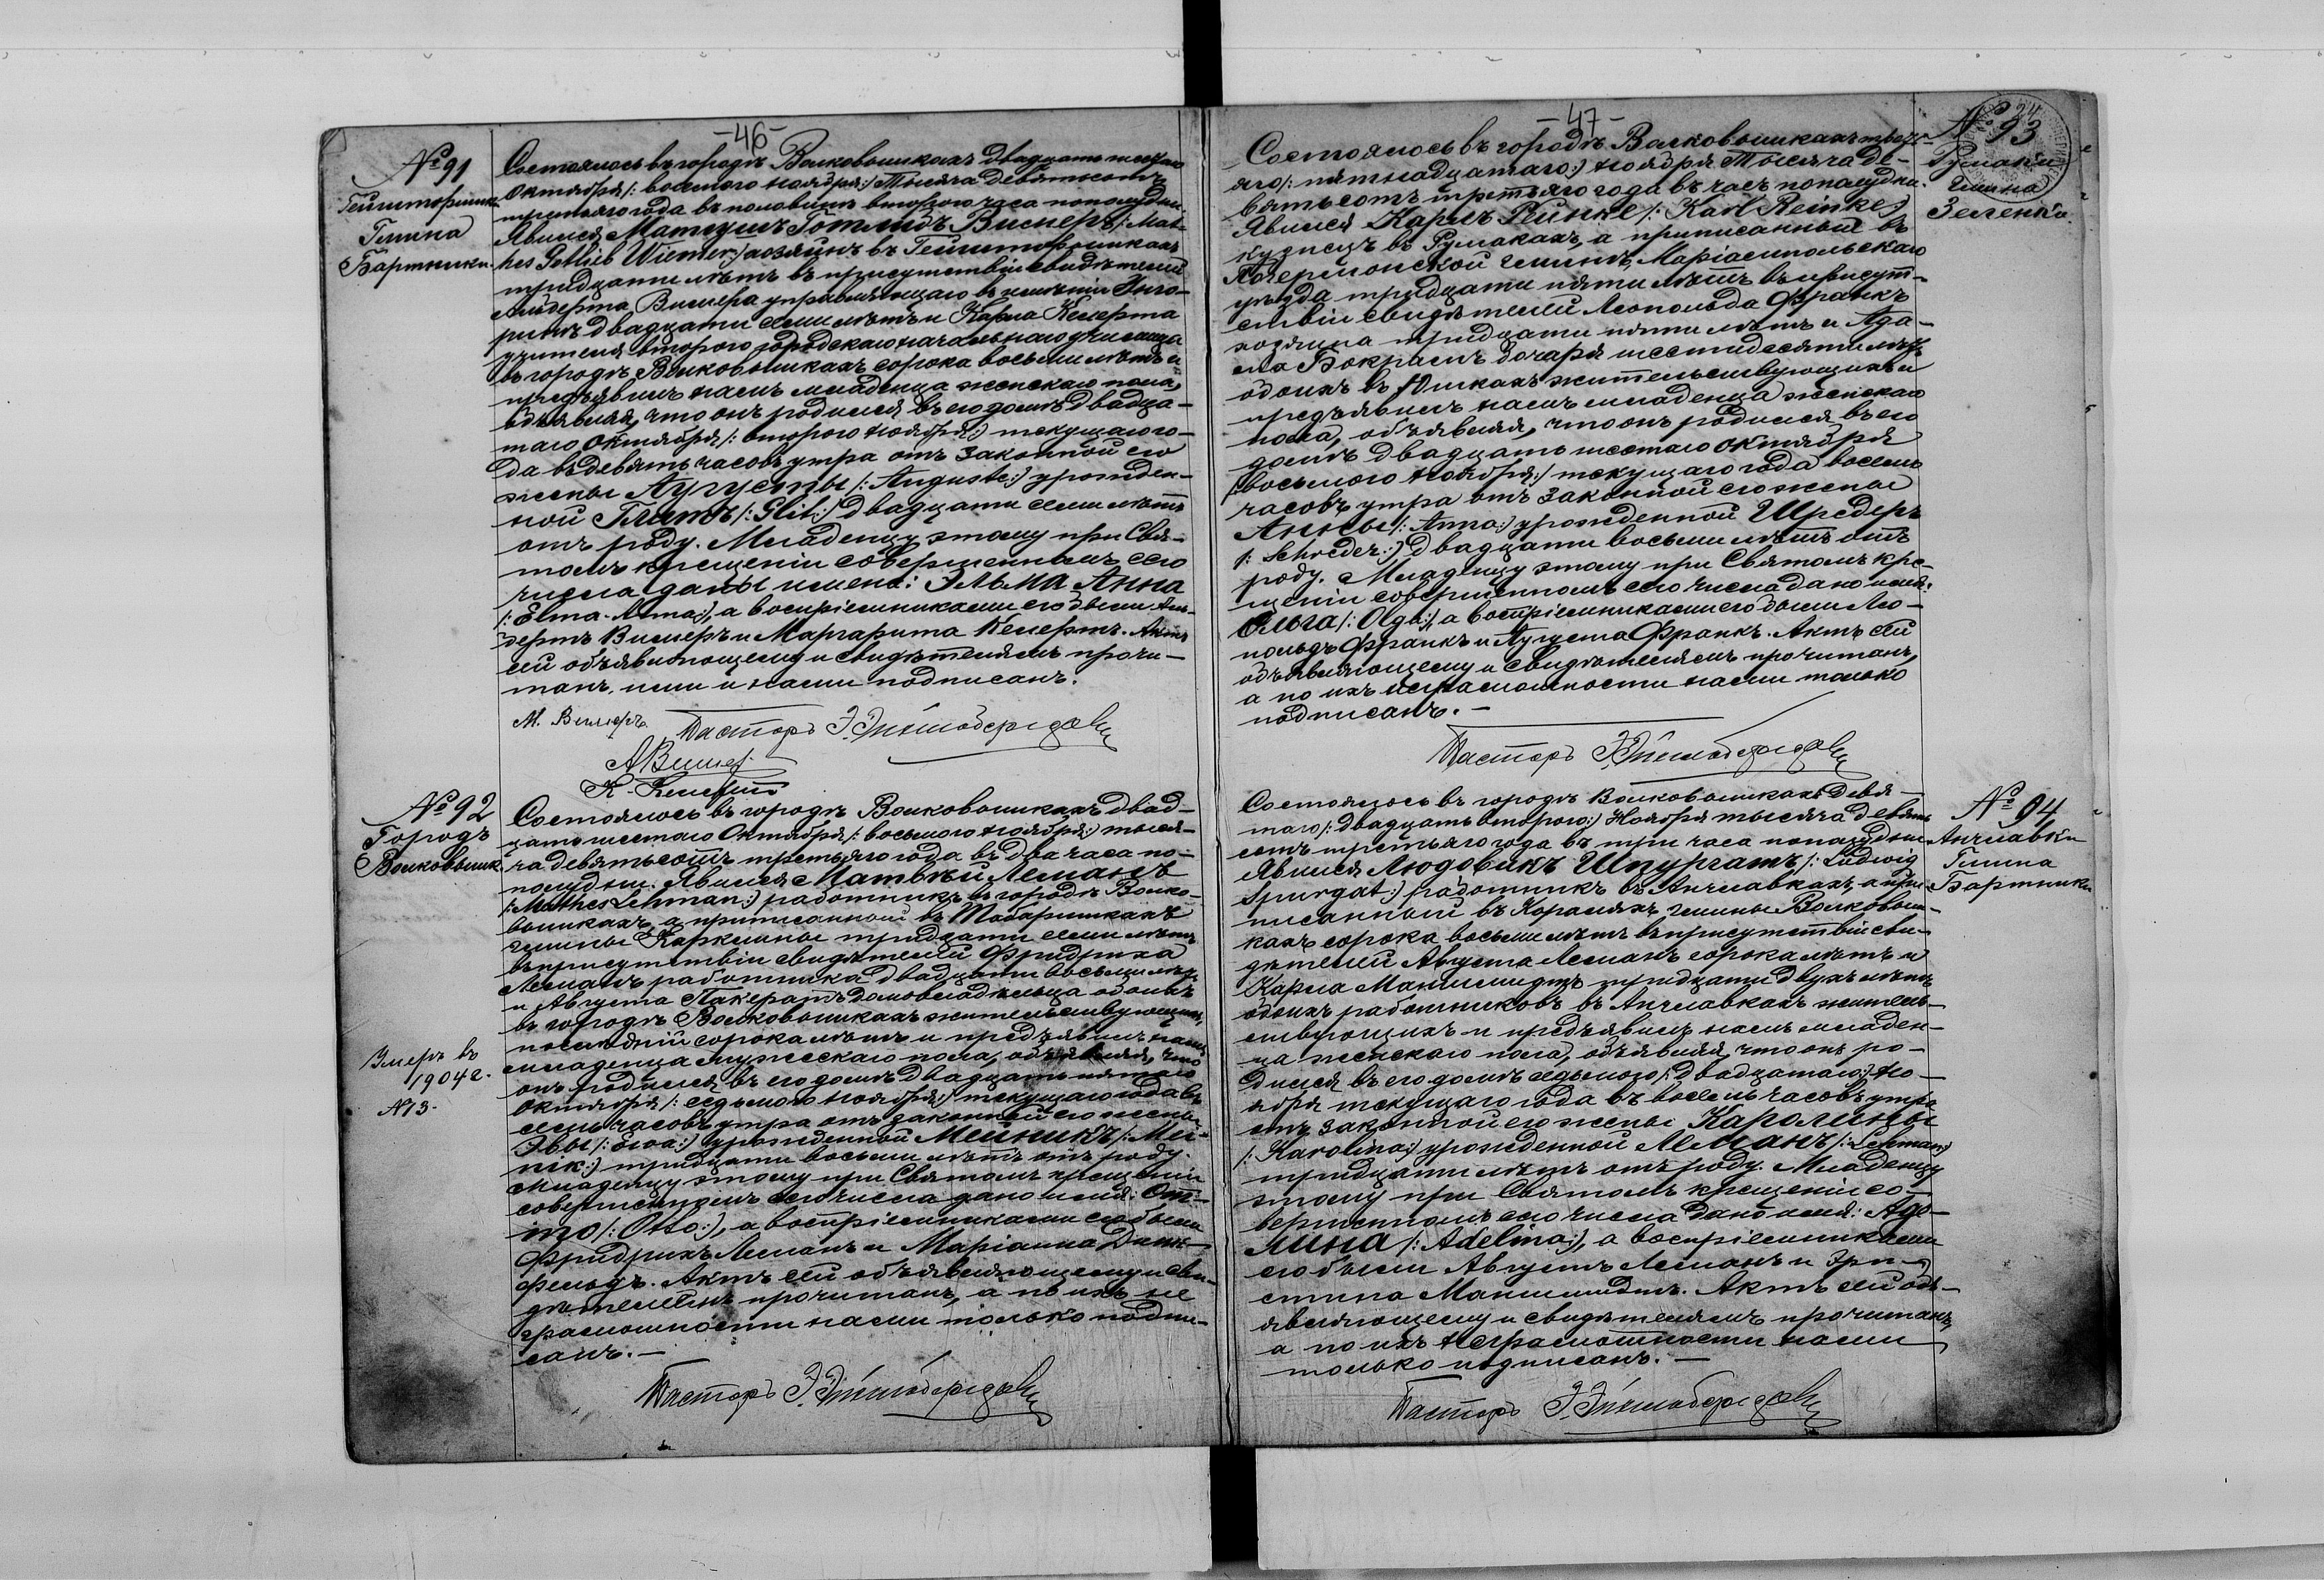 -46-
№ 91
Гмина
Бартники.
Состоялось въ городѣ Волковышкахъ двадцать шестаго
Октября /: восьмого ноября :/ тысяча девятьсотъ
третьяго года въ половинѣ второго часа пополудни.
Явился Матеушъ Готлибъ Вимеръ /: Mat-
hes Gotlieb Wiemer :/ хозяинъ въ
тридцати лѣтъ въ присутствіи свидѣтелей
Альберта Вимера управляющаго въ имѣніи
двадцати семи лѣтъ и Карла Келерта
учителя второго городскаго начальнаго училища
въ городѣ Волковышкахъ сорока восьми лѣтъ и
предъявилъ намъ младенца женскаго пола,
объявляя, что онъ родился въ его домѣ двадца-
таго Октября /: второго ноября :/ текущаго го-
да въ девять часовъ утра отъ законной его
жены Аугусты /: Auguste :/ урожден-
ной Глитъ /: Glit :/ двадцати семи лѣтъ
отъ роду. Младенцу этому при Свя-
томъ крещеніи совершенномъ сего
числа даны имена: Эльма Анна
/: Elma-Anna :/, а воспріемниками его были Аль-
бертъ Вимеръ и Маргарита Келертъ. Актъ
сей объявляющему и свидѣтелямъ прочи-
танъ, ими и нами подписанъ.
М. Вимеръ
Пасторъ
А Вимер
К. Келертъ
№ 92
Городъ
Волковышк.
Состоялось въ городѣ Волковышкахъ двад-
цать шестаго Октября /: восьмого ноября :/ тыся-
ча девятьсотъ третьяго года въ два часа по-
полудни. Явился Матвѣй Леманъ
/: Mathes Lehman :/ работникъ въ городѣ Волко-
вышкахъ, а приписанный въ Табаришкахъ
гмины тридцати семи лѣтъ
въ присутствіи свидѣтелей Фридриха
Леманъ работника двадцати восьми лѣтъ
и Августа Пакератъ домовладѣльца обоихъ
въ городѣ Волковышкахъ жительствующихъ,
послѣдній сорока лѣтъ и предъявилъ намъ
младенца мужескаго пола, объявляя, что
онъ родился въ его домѣ двадцать пятого
Октября /: седьмого ноября :/ текущаго года въ
семь часовъ утра отъ законной его жены
Эвы /: Ewa :/ урожденной Мейникъ /: Mei-
nik :/ тридцати восьми лѣтъ отъ роду.
Младенцу этому при Святомъ крещеніи
совершенномъ сего числа дано имя: От-
то /: Otto :/, а воспріемниками его были
Фридрихъ Леманъ и Маріанна
фельдъ. Актъ сей объявляющему и сви-
дѣтелямъ прочитанъ, а по ихъ не
грамотности нами только подпи-
санъ.-
Умеръ въ
1904 г.
№ 13.
Пасторъ
-47-
24
№ 93
Румаки
Гмина
Зеленка.
Состоялось въ городѣ Волковышкахъ
/: пятнадцатаго :/ ноября тысяча де-
вятьсотъ третьяго года въ часъ пополудни.
Явился Карлъ Рейнке /: Karl Reinke :/
кузнецъ въ Румакахъ, а приписанный въ
гминѣ, Маріампольскаго
уѣзда тридцати пяти лѣтъ въ присут-
ствіи свидѣтелей Леопольда Франкъ
хозяина тридцати пяти лѣтъ и Ада-
ма шестидесяти лѣтъ
обоихъ въ жительствующихъ и
предъявилъ намъ младенца женскаго
пола, объявляя, что онъ родился въ его
домѣ двадцать шестаго Октября
/: восьмого ноября :/ текущаго года восемь
часовъ утра отъ законной его жены
Анны /: Anna :/ урожденной Шредеръ
/: Schreder :/ двадцати восьми лѣтъ отъ
роду. Младенцу этому при Святомъ кре-
щеніи совершенномъ сего числа дано имя:
Ольга /: Olga :/, а воспріемниками его были Лео-
польдъ Франкъ и Аугуста Франкъ. Актъ сей
объявляющему и свидѣтелямъ прочитанъ,
а по ихъ неграмотности нами только
подписанъ.-
Пасторъ
№ 94
Анчлавки
Гмина
Бартники
Состоялось въ городѣ Волковышкахъ девя-
таго /: двадцать второго :/ Ноября тысяча девять
сотъ третьяго года въ три часа пополудни
Явился Людовикъ Шпургатъ /: Ludwig
Spurgat :/ работникъ въ Анчлавкахъ, а при-
писанный въ гмины Волковыш-
кахъ сорока восьми лѣтъ въ присутствіи сви-
дѣтелей Августа Леманъ сорока лѣтъ и
Карла тридцати двухъ лѣтъ
обоихъ работниковъ въ Анчлавкахъ житель-
ствующихъ и предъявилъ намъ младен-
ца женскаго пола, объявляя, что онъ ро-
дился въ его домѣ седьмого /: двадцатаго :/ но-
ября текущаго года въ восемь часовъ утра
отъ законной его жены Каролины
/: Karolina :/ урожденной Леманъ /: Lehman :/
тридцати лѣтъ отъ роду. Младенцу
этому при Святомъ крещеніи со-
вершенномъ сего числа дано имя: Аде-
лина /: Adelina :/, а воспріемниками
его были Августъ Леманъ и Эрн-
естина Актъ сей объ-
являющему и свидѣтелямъ прочитанъ,
а по ихъ неграмотности нами
только подписанъ.-
Пасторъ